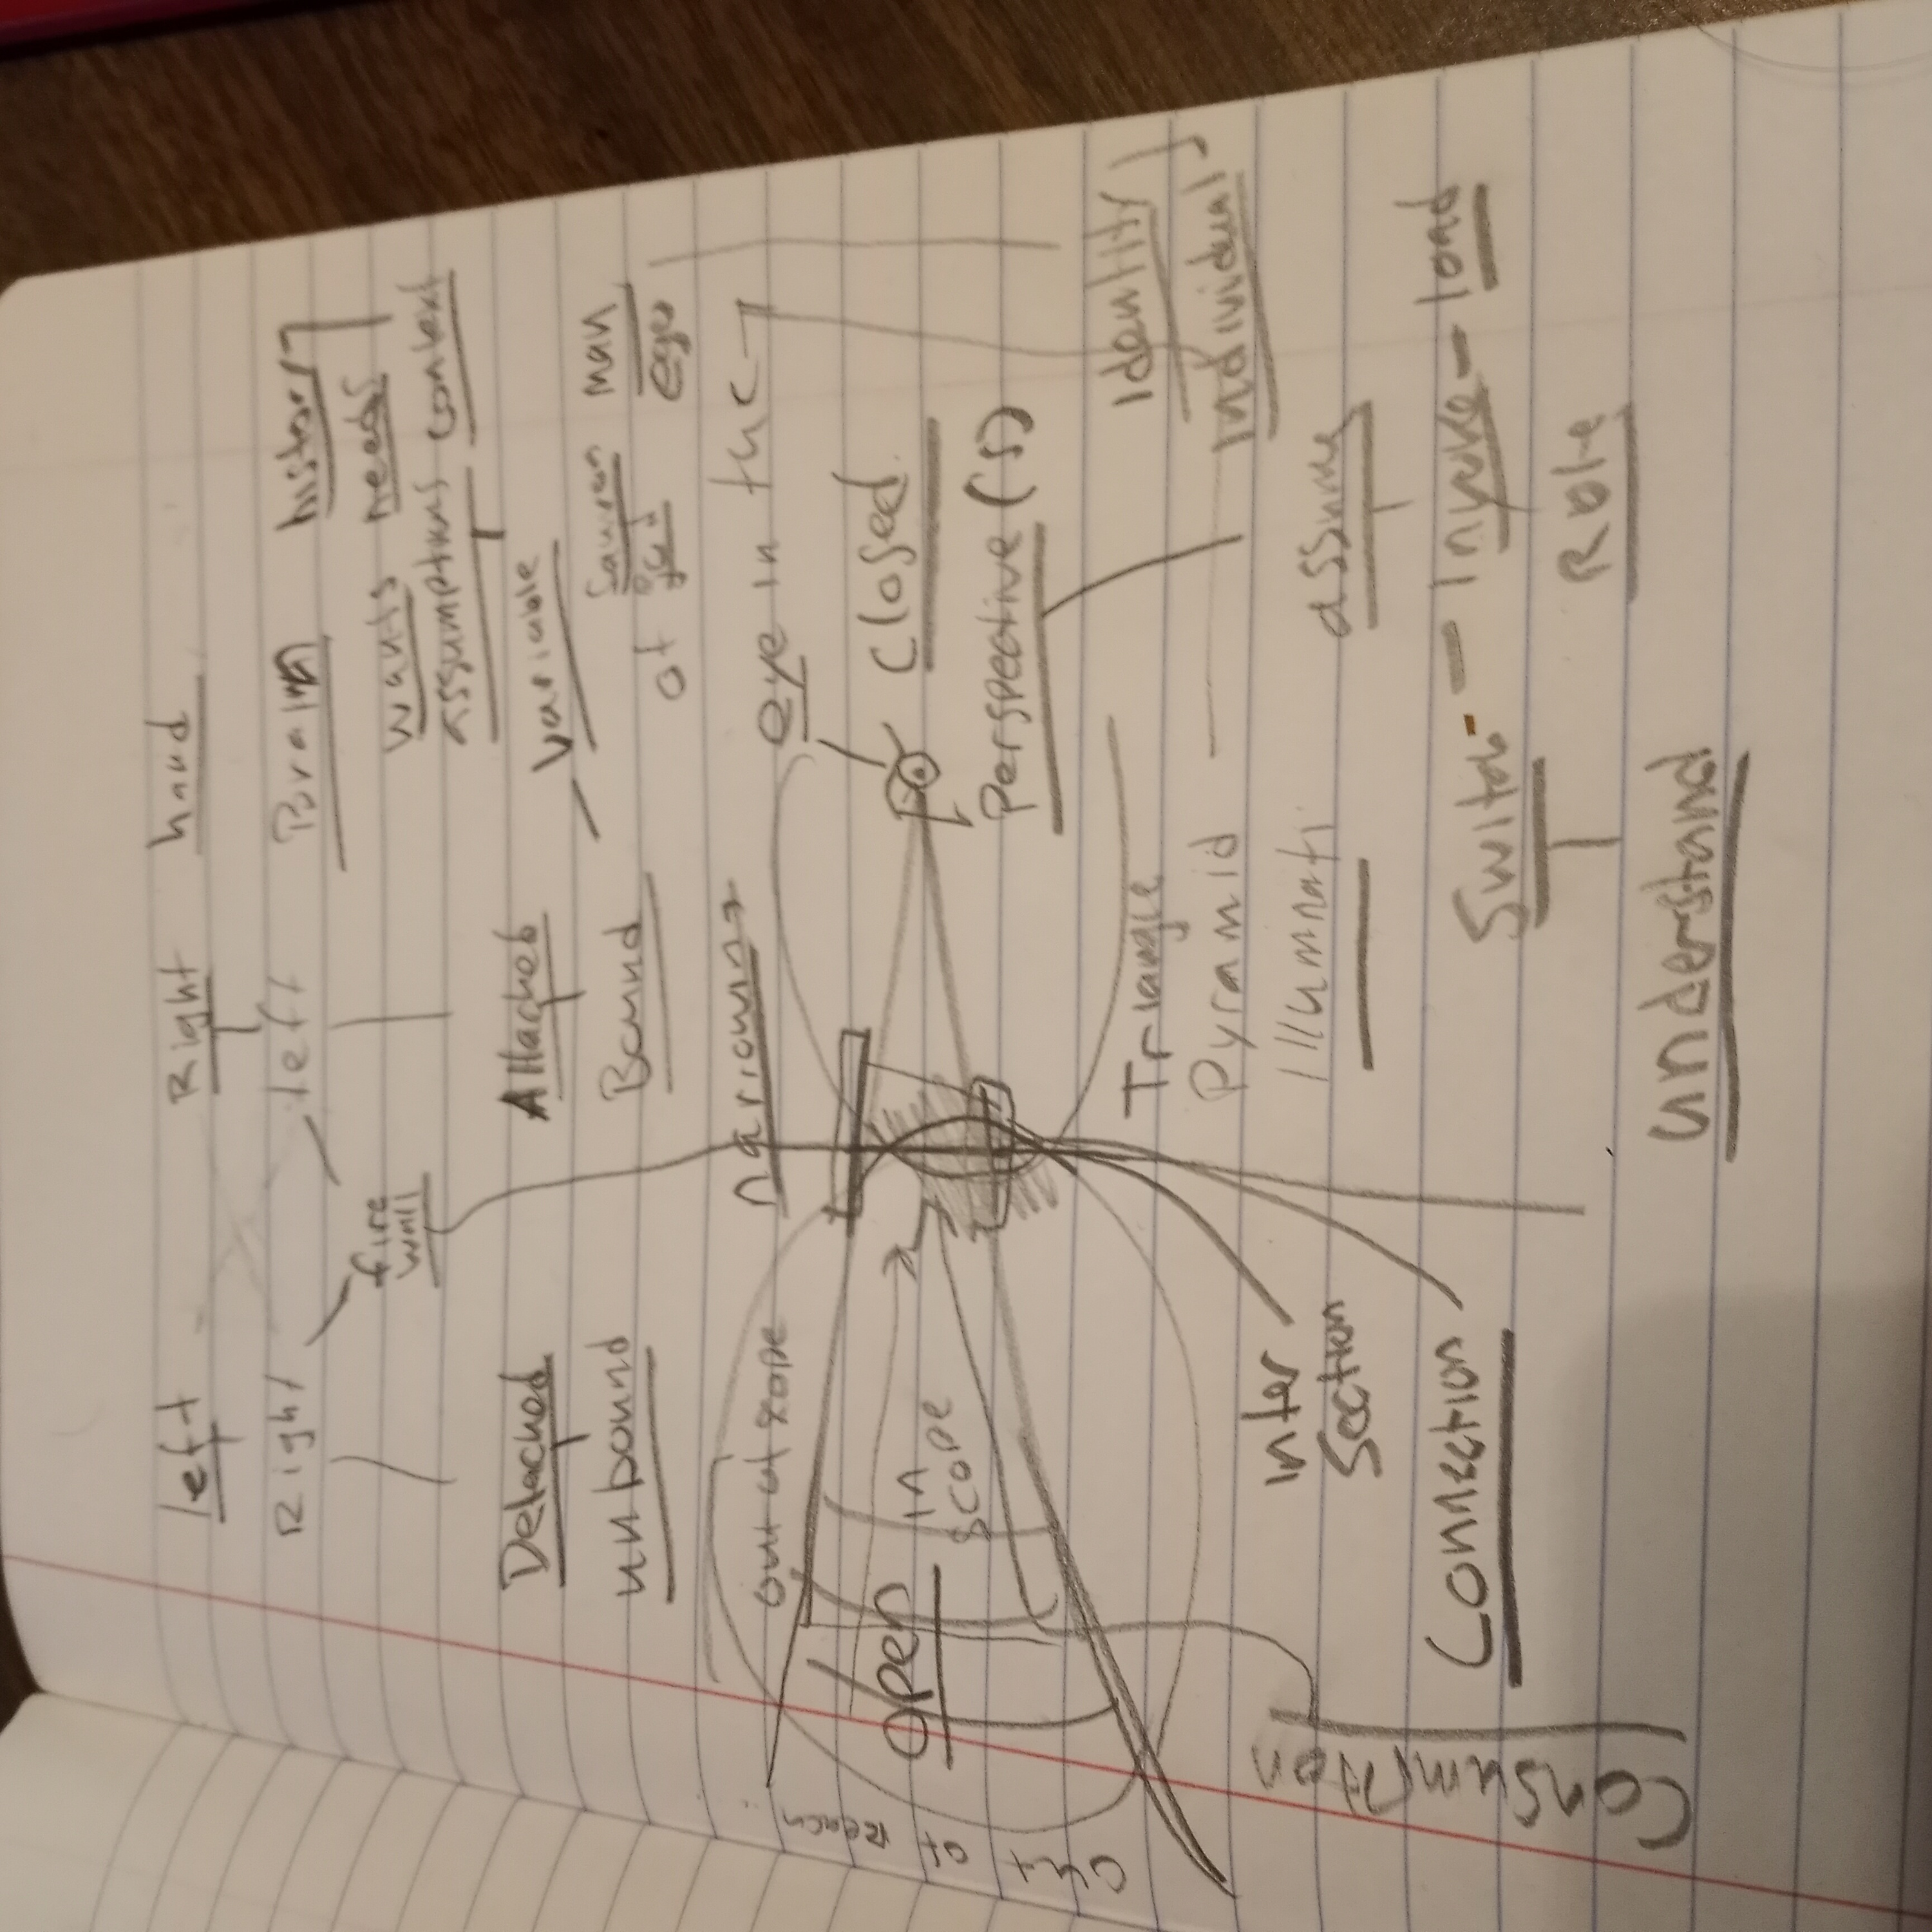 left Right hand
Right left Brain history
fire wall wants needs
assumptions context
Detached Attached variable
unbound Bound of man
eyes
out of scope narrowing eye in the
In scope
Open Closed
Perspective(s)
Out of Reach
Triangle Identity
Pyramid Individual
Illuminati
Inter Section assume
Connection Switch - Invoke - load
Role
Understand